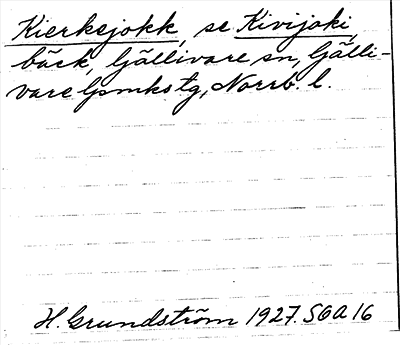 Kierkejokk, se Kivijoki,
bäck, Gällivare sn, Gälli-
vare lpmkstg, Norrb. l.
H. Grundström 1927. SOA 16